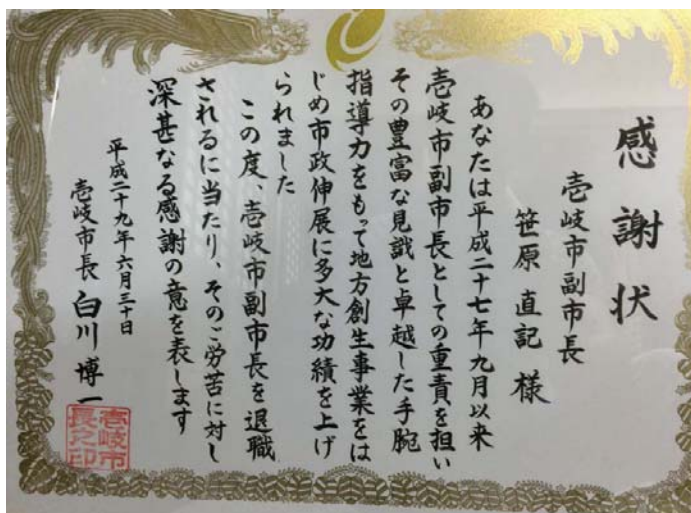 感謝状
壱岐市副市長
笹原直記様
あなたは平成二十七年九月以来
壱岐市副市長としての重責を担い
その豊富な見識と卓越した手腕
指導力をもって地方創生事業をは
じめ市政伸展に多大な功績を上げ
られました
この度、壱岐市副市長を退職
されるに当たり、そのご労苦に対し
深甚なる感謝の意を表します
平成二十九年六月三十日
壱岐市長 白川博一
壱岐市
長之印